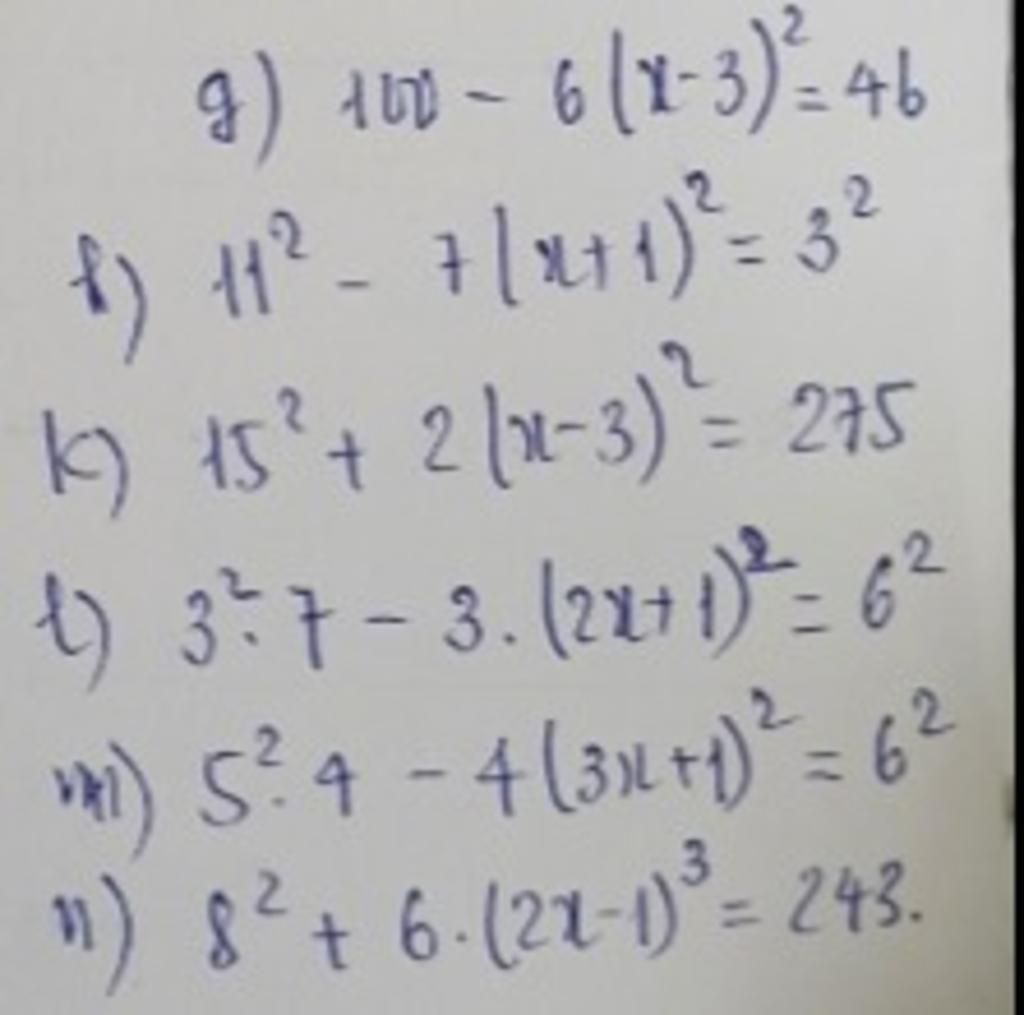 g) 100 - 6(x-3)² = 46
h) 11² - 7(x+1)² = 3²
k) 15² + 2(x-3)² = 275
l) 3².7 - 3.(2x+1)² = 6²
m) 5².4 - 4(3x+1)² = 6²
n) 8² + 6.(2x-1)³ = 243.